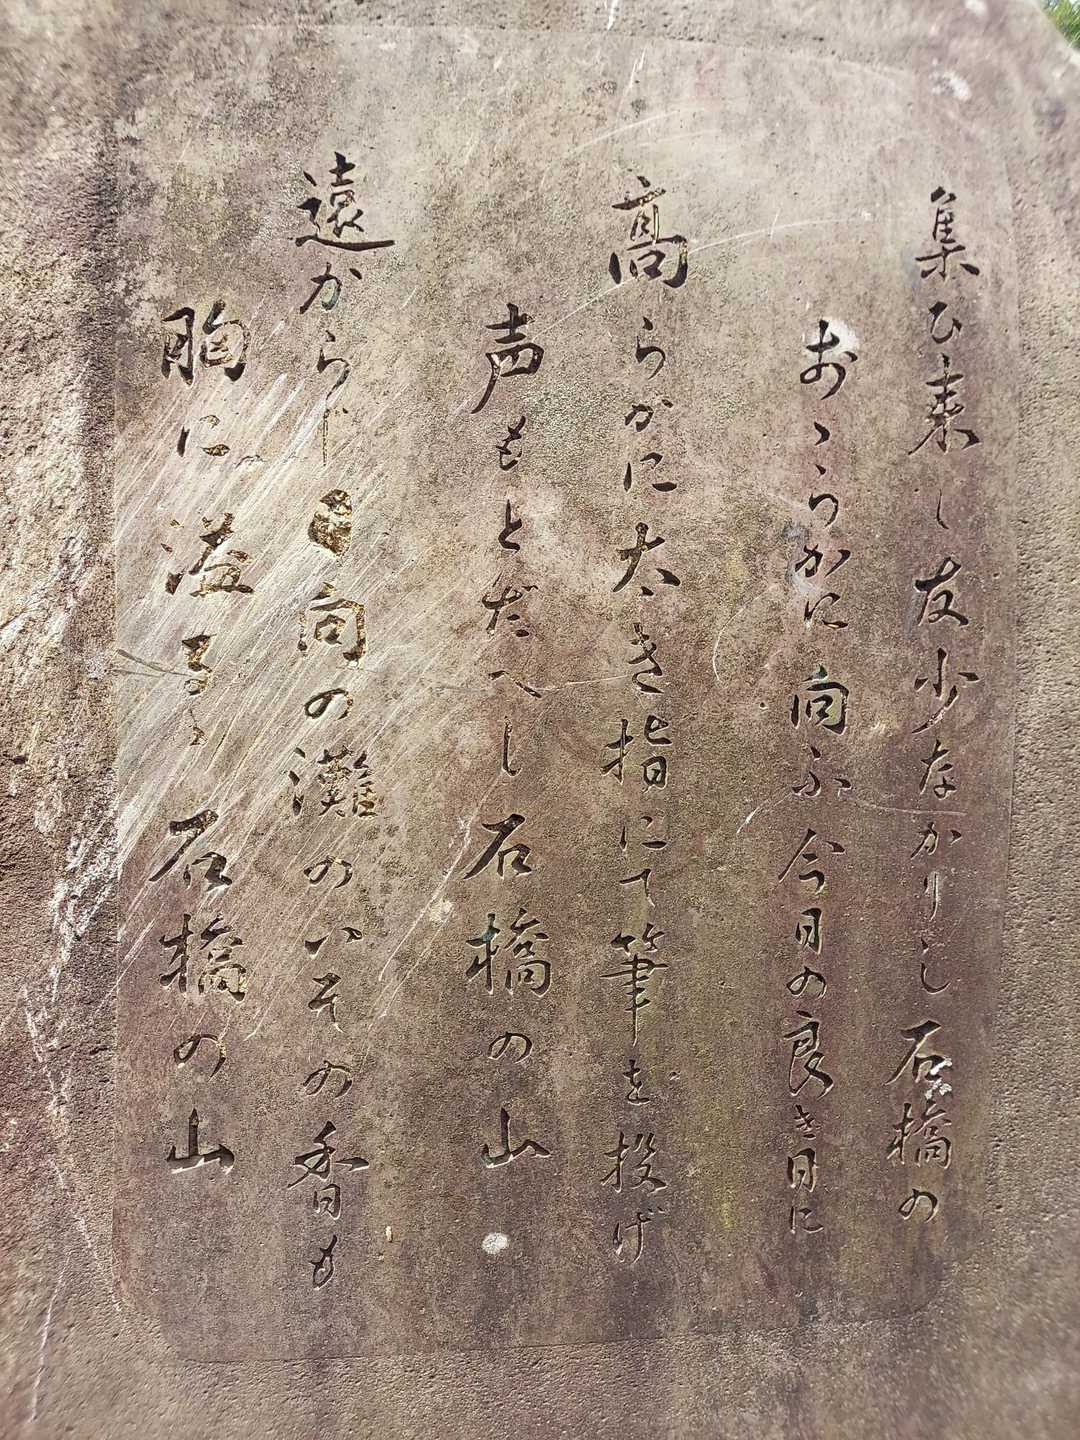 集ひ来し友少なかりし石橋の
おゝらかに向ふ今日の良き日に
高らかに太き指にて筆を投げ
声もとだへし石橋の山
遠からじ日向の灘のいその香も
胸に溢るゝ石橋の山